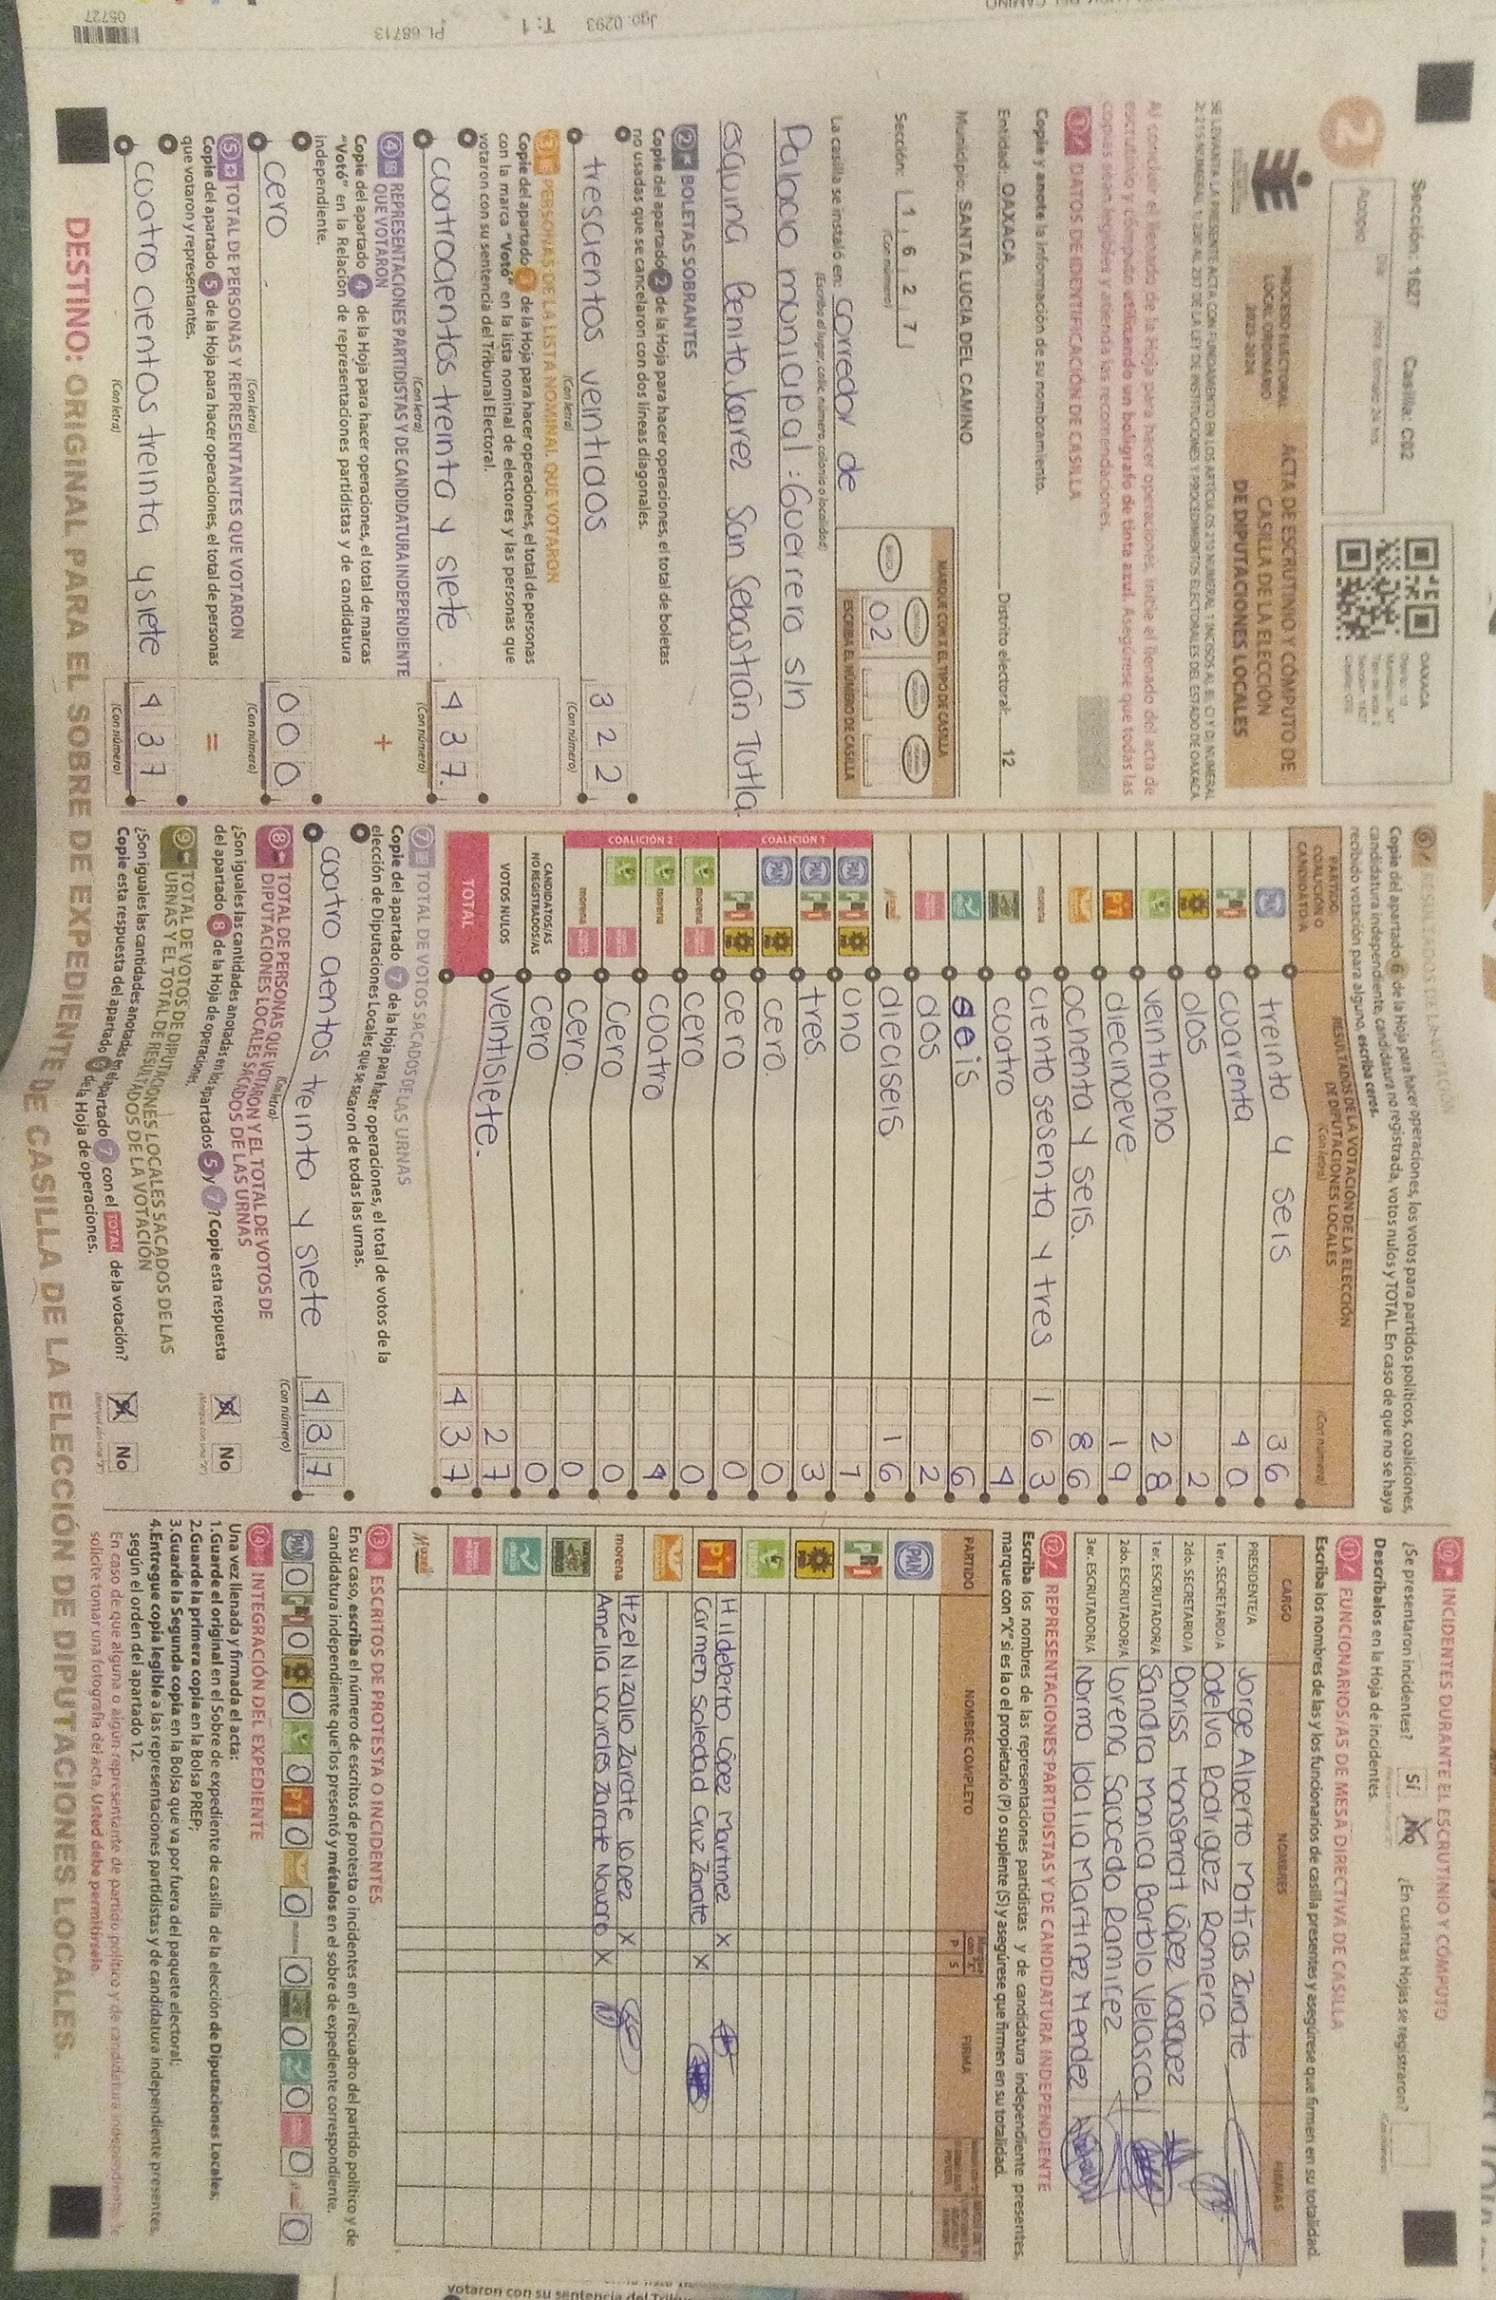 2
Sección: 1627 Casilla: C02
Acopio
Día
Hora formato 24 hrs.
OAXACA
PROCESO ELECTORAL
LOCAL ORDINARIO
2023-2024
ACTA DE ESCRUTINIO Y CÓMPUTO DE
CASILLA DE LA ELECCIÓN
DE DIPUTACIONES LOCALES
Al concluir el llenado de la Hoja para hacer operaciones, inicie el llenado del acta de
escrutinio y cómputo utilizando un bolígrafo de tinta azul. Asegúrese que todas las
copias sean legibles y atienda las recomendaciones.
1 DATOS DE IDENTIFICACIÓN DE CASILLA
Copie y anote la información de su nombramiento.
Entidad: OAXACA Distrito electoral: 12
Municipio: SANTA LUCIA DEL CAMINO
Sección: 1 6 2 7
(Con número)
MARQUE CON X EL TIPO DE CASILLA
ESCRIBA EL NÚMERO DE CASILLA
02
La casilla se instaló en: corredor de
(Escriba el lugar, calle, número, colonia o localidad)
Palacio municipal : Guerrero s/n
esquina Benito Juarez San Sebastián Tutla
2 BOLETAS SOBRANTES
Copie del apartado 2 de la Hoja para hacer operaciones, el total de boletas
no usadas que se cancelaron con dos líneas diagonales.
trescientos veintidos 3 2 2
(Con letra) (Con número)
3 PERSONAS DE LA LISTA NOMINAL QUE VOTARON
Copie del apartado 3 de la Hoja para hacer operaciones, el total de personas
con la marca "Votó" en la lista nominal de electores y las personas que
votaron con su sentencia del Tribunal Electoral.
cuatrocientos treinta y siete. 4 3 7.
(Con letra) (Con número)
4 REPRESENTACIONES PARTIDISTAS Y DE CANDIDATURA INDEPENDIENTE
QUE VOTARON
+
Copie del apartado 4 de la Hoja para hacer operaciones, el total de marcas
"Votó" en la Relación de representaciones partidistas y de candidatura
independiente.
cero 0 0 0
(Con letra) (Con número)
5 TOTAL DE PERSONAS Y REPRESENTANTES QUE VOTARON
=
Copie del apartado 5 de la Hoja para hacer operaciones, el total de personas
que votaron y representantes.
cuatro cientos treinta y siete 4 3 7
(Con letra) (Con número)
6 RESULTADOS DE LA VOTACIÓN
Copie del apartado 6 de la Hoja para hacer operaciones, los votos para partidos políticos, coaliciones,
candidatura independiente, candidatura no registrada, votos nulos y TOTAL. En caso de que no se haya
recibido votación para alguno, escriba ceros.
PARTIDO,
COALICIÓN O
CANDIDATO/A
RESULTADOS DE LA VOTACIÓN DE LA ELECCIÓN
DE DIPUTACIONES LOCALES
(Con letra) (Con número)
PAN treinta y seis 3 6
PRI cuarenta 4 0
PRD dos 2
veintiocho 2 8
PT diecinueve 1 9
ochenta y seis. 8 6
morena ciento sesenta y tres 1 6 3
cuatro 4
seis 6
dos 2
dieciseis 1 6
COALICIÓN 1
PAN PRI PRD uno 1
PAN PRI tres. 3
PAN PRD cero. 0
PRI PRD cero 0
COALICIÓN 2
morena cero 0
morena cuatro 4
cero 0
morena cero. 0
CANDIDATOS/AS
NO REGISTRADOS/AS cero 0
VOTOS NULOS veintisiete. 2 7
TOTAL 4 3 7
7 TOTAL DE VOTOS SACADOS DE LAS URNAS
Copie del apartado 7 de la Hoja para hacer operaciones, el total de votos de la
elección de Diputaciones Locales que se sacaron de todas las urnas.
cuatro cientos treinta y siete 4 3 7
(Con letra) (Con número)
8 TOTAL DE PERSONAS QUE VOTARON Y EL TOTAL DE VOTOS DE
DIPUTACIONES LOCALES SACADOS DE LAS URNAS
¿Son iguales las cantidades anotadas en los apartados 5 y 7? Copie esta respuesta
del apartado 8 de la Hoja de operaciones.
Sí No
9 TOTAL DE VOTOS DE DIPUTACIONES LOCALES SACADOS DE LAS
URNAS Y EL TOTAL DE RESULTADOS DE LA VOTACIÓN
¿Son iguales las cantidades anotadas en el apartado 7 con el TOTAL de la votación?
Copie esta respuesta del apartado 9 de la Hoja de operaciones.
Sí No
10 INCIDENTES DURANTE EL ESCRUTINIO Y CÓMPUTO
¿Se presentaron incidentes? Sí No ¿En cuántas Hojas se registraron?
Descríbalos en la Hoja de incidentes.
11 FUNCIONARIOS/AS DE MESA DIRECTIVA DE CASILLA
Escriba los nombres de las y los funcionarios de casilla presentes y asegúrese que firmen en su totalidad.
CARGO NOMBRES FIRMAS
PRESIDENTE/A Jorge Alberto Matías Zarate
1er. SECRETARIO/A Odelva Rodriguez Romero
2do. SECRETARIO/A Doriss Monserratt López Vasquez
1er. ESCRUTADOR/A Sandra Monica Bartolo Velasco
2do. ESCRUTADOR/A Lorena Saucedo Ramirez
3er. ESCRUTADOR/A Norma Idalia Martinez Mendez
12 REPRESENTACIONES PARTIDISTAS Y DE CANDIDATURA INDEPENDIENTE
Escriba los nombres de las representaciones partidistas y de candidatura independiente presentes,
marque con "X" si es la o el propietario (P) o suplente (S) y asegúrese que firmen en su totalidad.
PARTIDO NOMBRE COMPLETO P S FIRMA
PAN
PRI
PRD
PT Hildeberto López Martinez X
Carmen Soledad Cruz Zarate X
morena Itzel Nizalio Zarate Lopez X
Amelia Lourdes Zarate Navarro X
13 ESCRITOS DE PROTESTA O INCIDENTES
En su caso, escriba el número de escritos de protesta o incidentes en el recuadro del partido político y de
candidatura independiente que los presentó y métalos en el sobre de expediente correspondiente.
PAN 0 PRI 0 PRD 0 0 PT 0 0 morena 0 0 0 0 0
14 INTEGRACIÓN DEL EXPEDIENTE
Una vez llenada y firmada el acta:
1.Guarde el original en el Sobre de expediente de casilla de la elección de Diputaciones Locales;
2.Guarde la primera copia en la Bolsa PREP;
3.Guarde la Segunda copia en la Bolsa que va por fuera del paquete electoral;
4.Entregue copia legible a las representaciones partidistas y de candidatura independiente presentes,
según el orden del apartado 12.
En caso de que alguna o algún representante de partido político y de candidatura independiente le
solicite tomar una fotografía del acta, Usted debe permitírselo.
DESTINO: ORIGINAL PARA EL SOBRE DE EXPEDIENTE DE CASILLA DE LA ELECCIÓN DE DIPUTACIONES LOCALES.
Jgo: 0293 T: 1 Pl. 68713
05727